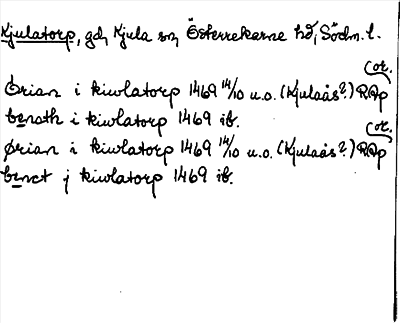 Kjulatorp, gd, Kjula sn, Österrekarne hd, Södm. l.
(or.
Örian i kiwlatorp 1469 14/10 u.o. (Kjulaås?) RAp
benath i kiwlatorp 1469 ib.
(or.
Ørian i kiwlatorp 1469 14/10 u.o. (Kjulaås?) RAp
benct j kiwlatorp 1469 ib.